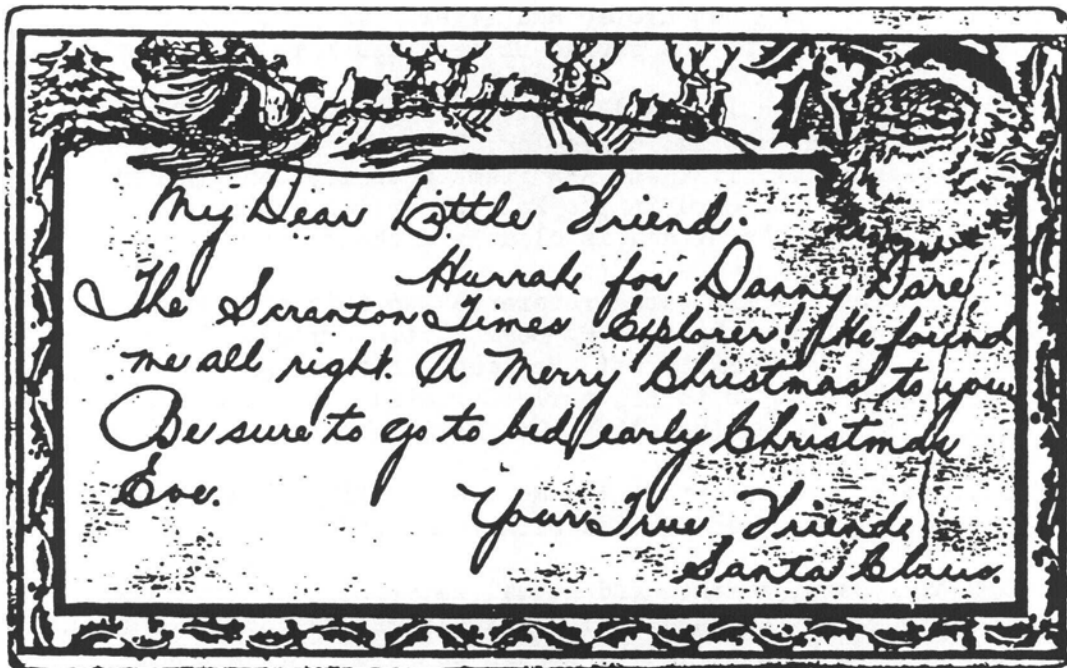 My Dear Little Friend.
Hurrah for Danny Dare
The Scranton Times Explorer! He found
me all right. A Merry Christmas to you
Be sure to go to bed early Christmas
Eve.
Your True Friend,
Santa Claus.